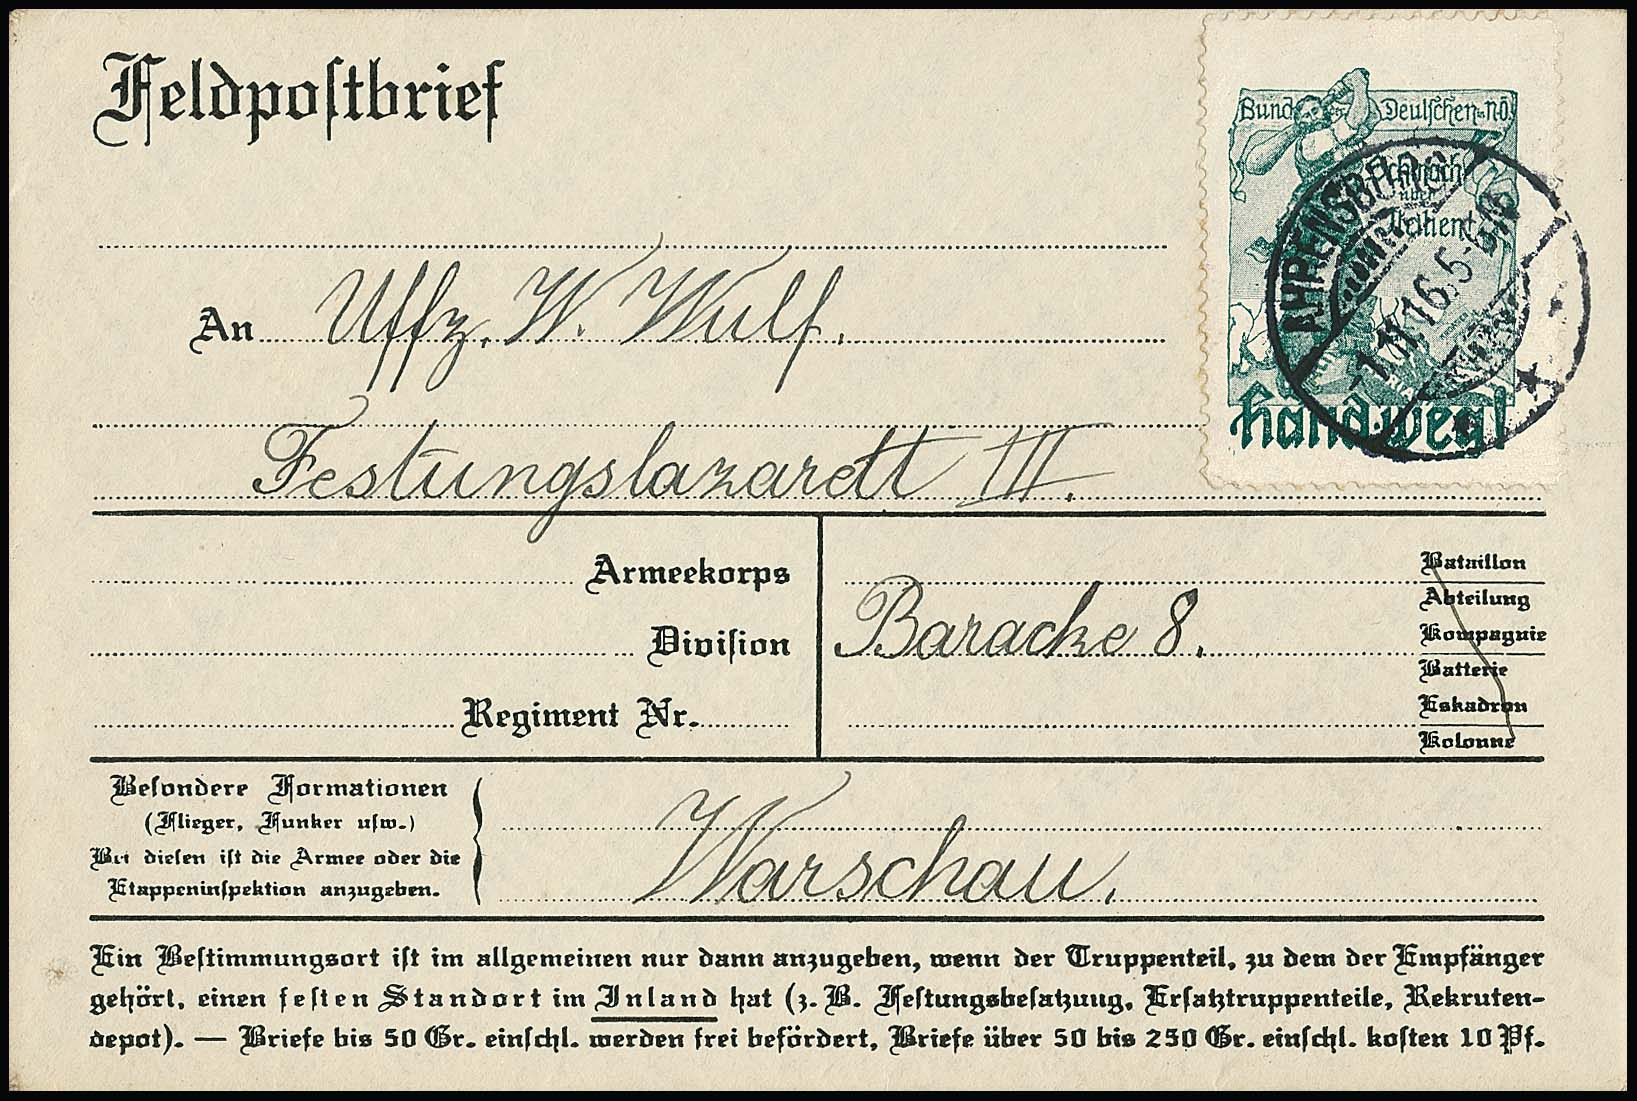 Feldpostbrief
Bund Deutschen NÖ
AHRENSBURG
-1.11.16.5-6N
An Uffz. W. Wulf.
handwegl
Festungslazarett III.
Armeekorps
Division
Regiment Nr.
Baracke 8.
Bataillon
Abteilung
Kompagnie
Batterie
Eskadron
Kolonne
Besondere Formationen
(Flieger, Funker usw.)
Bei diesen ist die Armee oder die
Etappeninspektion anzugeben.
Warschau.
Ein Bestimmungsort ist im allgemeinen nur dann anzugeben, wenn der Truppenteil, zu dem der Empfänger
gehört, einen festen Standort im Inland hat (z. B. Festungsbesatzung, Ersatztruppenteile, Rekruten-
depot). — Briefe bis 50 Gr. einschl. werden frei befördert, Briefe über 50 bis 250 Gr. einschl. kosten 10 Pf.